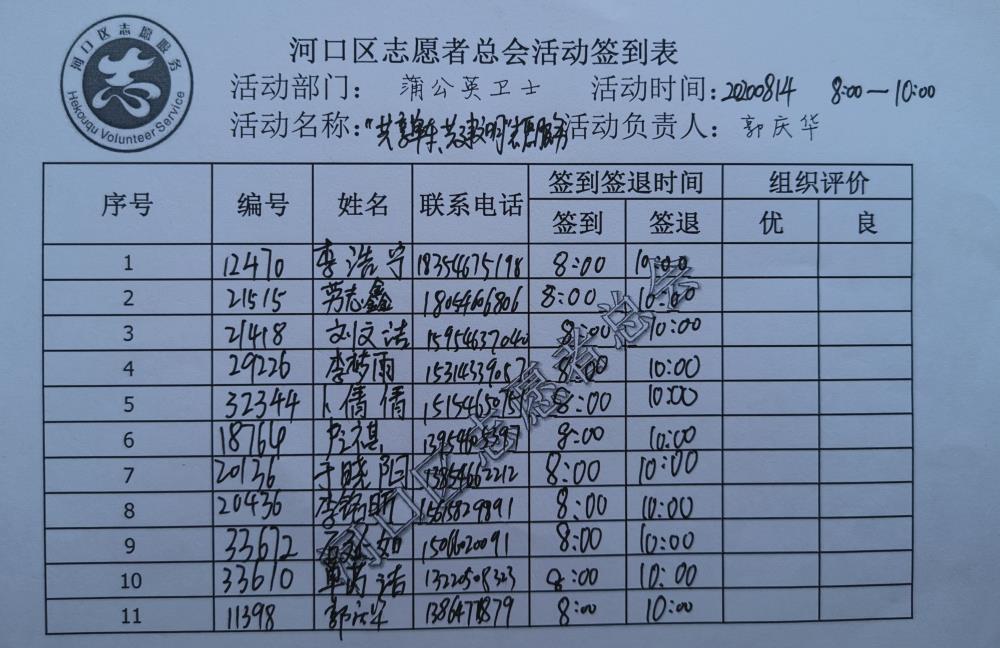 河口区志愿服务
Hekouqu Volunteer Service
河口区志愿者总会活动签到表
活动部门: 蒲公英卫士 活动时间:20200814 8:00—10:00
活动名称: 活动负责人: 郭庆华
序号 编号 姓名 联系电话 签到签退时间 组织评价
签到 签退 优 良
1 12470 李浩宁 18354675198 8:00 10:00
2 21515 劳志鑫 18054606806 8:00 10:00
3 21418 刘文洁 15954637040 8:00 10:00
4 29226 李梦雨 8:00 10:00
5 32344 卜倩倩 8:00 10:00
6 18764 8:00 10:00
7 20136 于晓阳 13854662212 8:00 10:00
8 20436 李铭昕 15615829891 8:00 10:00
9 33672 8:00 10:00
10 33610 8:00 10:00
11 11398 郭庆华 8:00 10:00
河口区志愿者总会